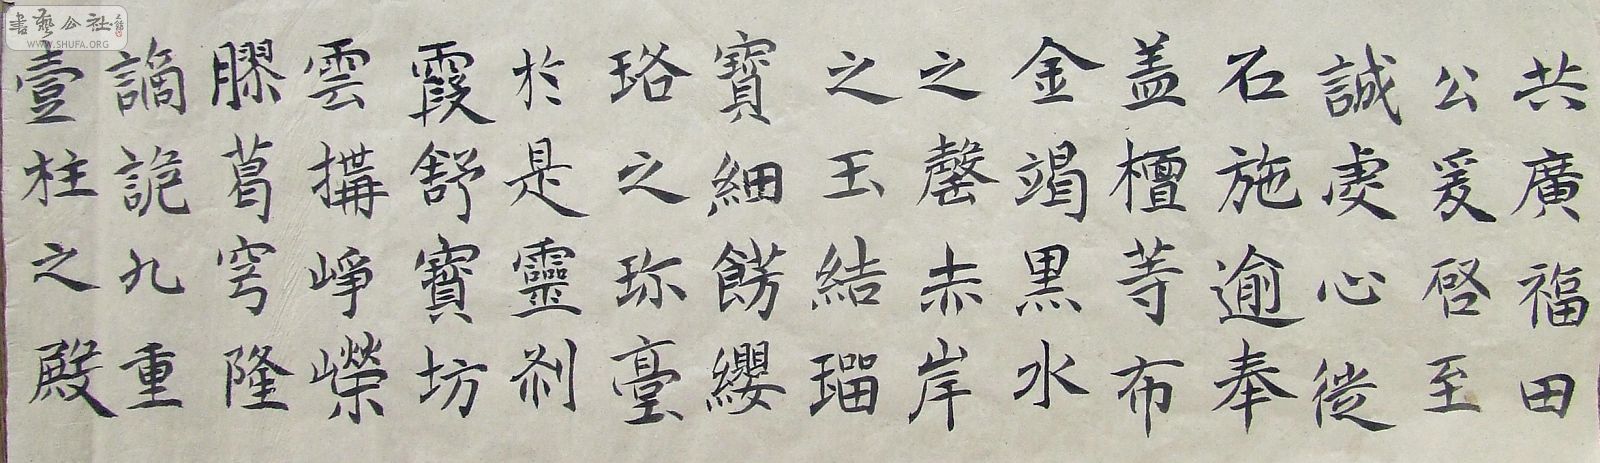 共廣福田
公爰啓至
誠虔心徙
石施逾奉
盖檀等布
金竭黑水
之罄赤岸
之玉結瑠
寶細餝纓
珞之珎臺
於是靈刹
霞舒寶坊
雲搆崢嶸
膠葛穹隆
譎詭九重
壹柱之殿
書藝公社
WWW.SHUFA.ORG